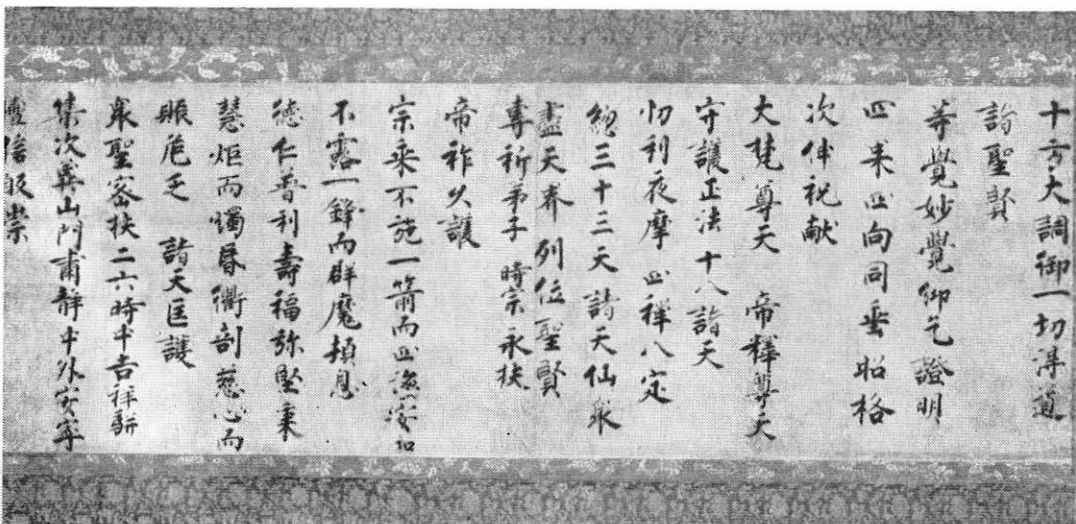 十方大調御一切得道
諸聖賢
等覺妙覺仰乞證明
四果四向同垂昭格
次伸祝献
大梵尊天 帝釋尊天
守護正法十八諸天
忉利夜摩四禅八定
總三十三天諸天仙衆
盡天界列位聖賢
專祈弟子時宗永扶
帝祚久護
宗乘不施一箭而四海安和
不露一鋒而群魔頓息
德仁普利壽福弥堅秉
慧炬而燭昏衢剖慈心而
賑危乏 諸天匡護
衆聖密扶二六時中吉祥駢
集次冀山門肅静中外安寧
檀信敬崇